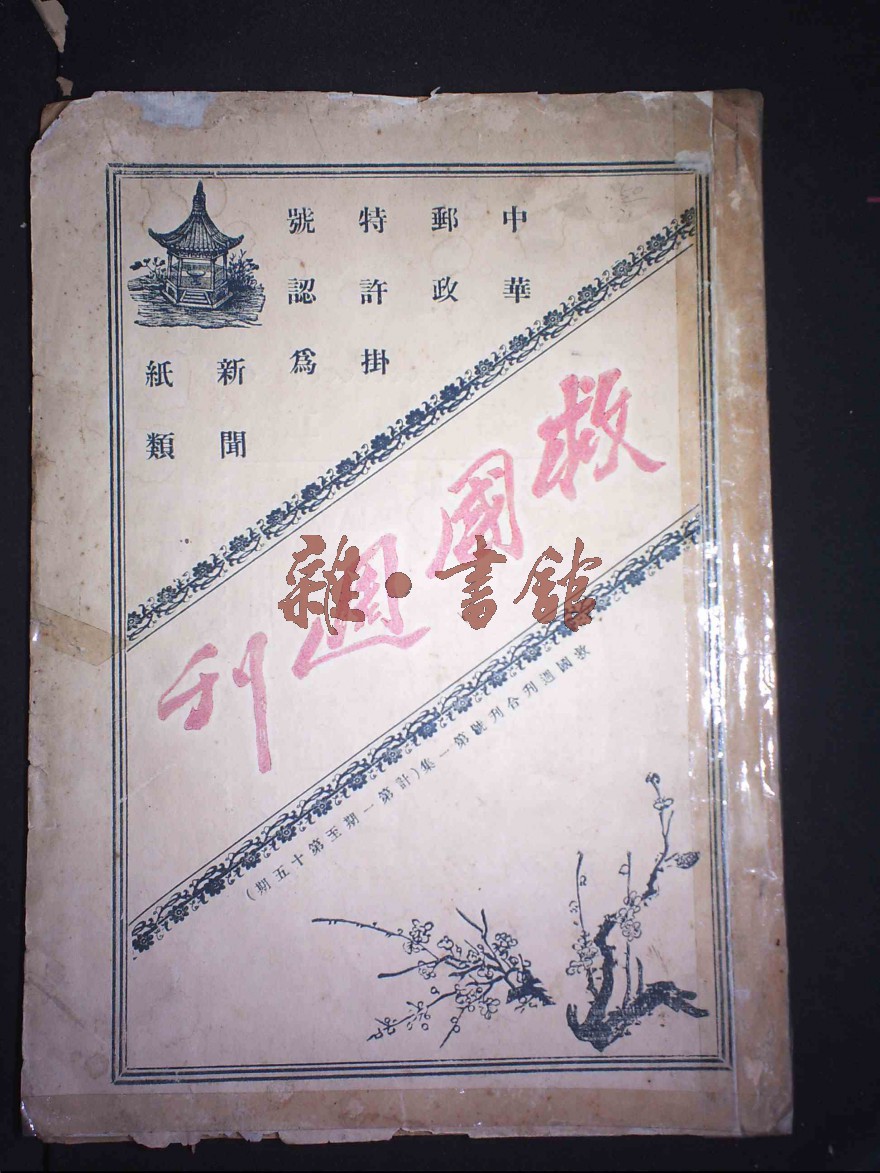 中華
郵政
特許掛
號認爲
新聞
紙類
救國週刊
救國週刊合刊號第一集(計第一期至第十五期)
雜·書館